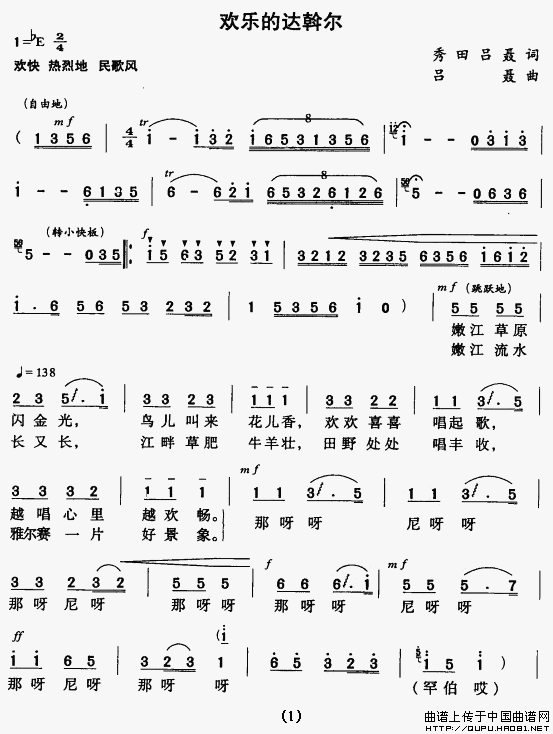 欢乐的达斡尔
1=♭E 2/4
欢快 热烈地 民歌风
秀田吕聂 词
吕 聂 曲
(自由地)
mf
tr
8
( 1 3 5 6 | 4/4 i - i 3 2 | 1 6 5 3 1 3 5 6 | i - - 0 3 1 3
tr
8
i - - 6 1 3 5 | 6 - 6 2 i | 6 5 3 2 6 1 2 6 | 5 - - 0 6 3 6
(转小快板)
f
5 - - 0 3 5 i 5 6 3 5 2 3 1 | 3 2 1 2 3 2 3 5 6 3 5 6 1 6 1 2
mf (跳跃地)
i . 6 5 6 5 3 2 3 2 | 1 5 3 5 6 i 0 ) | 5 5 5 5
嫩江 草原
嫩江 流水
♩=138
2 3 5 . i | 3 3 2 3 1 1 1 | 3 3 2 2 | 1 1 3 . 5
闪金光， 鸟儿叫来 花儿香， 欢欢喜喜 唱起歌，
长又长， 江畔草肥 牛羊壮， 田野处处 唱丰收，
mf
3 3 3 2 | 1 1 1 | 1 1 3 . 5 | 1 1 3 . 5
越唱心里 越欢畅。 那呀呀 尼呀呀
雅尔赛一片 好景象。
f
mf
3 3 2 3 2 | 5 5 5 | 6 6 6 . i | 5 5 5 . 7
那呀尼呀 那呀呀 那呀呀 尼呀呀
ff
(i
i i 6 5 | 3 2 3 1 | i i 6 5 | 3 2 3 i) | i 5 i
那呀尼呀 那呀 呀
(罕伯 哎)
(1)
曲谱上传于中国曲谱网
HTTP://QUPU.HAO81.NET